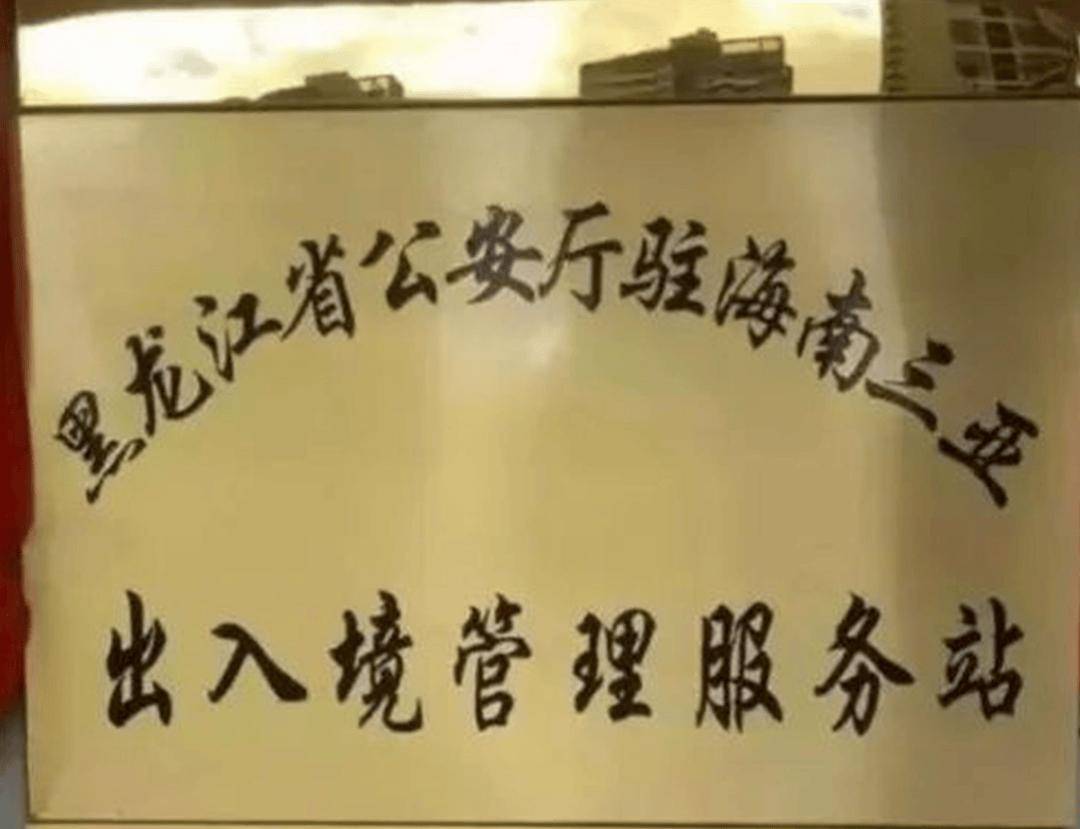 黑龙江省公安厅驻海南三亚
出入境管理服务站